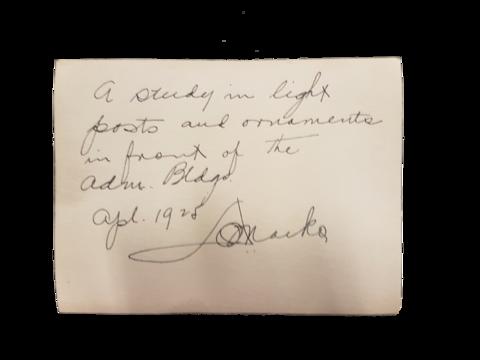 A study in light
posts and ornaments
in front of the
Adm. Bldgs.
Apl. 1928